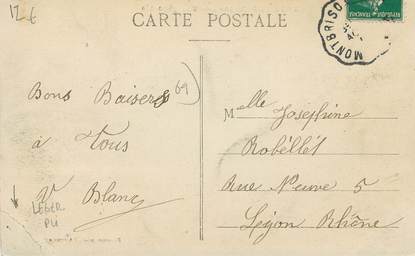 12 €
CARTE POSTALE
MONTBRISO
Bons Baisers
69
à Tous
V Blanc
LEGER
PLI
Melle Josephine
Robéllét
Rue Neuve 5
Leyon Rhône